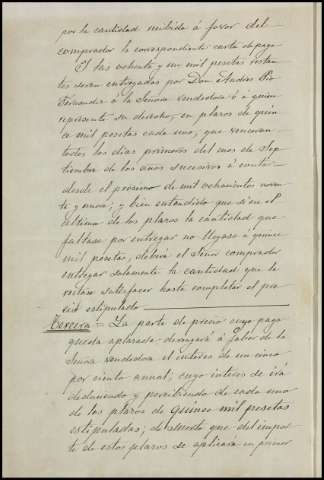 por la cantidad recibida á favor del
comprador la correspondiente carta de pago
Y las ochenta y un mil pesetas restan
tes seran entregadas por Don Andres Pio
Fernandez á la Señora vendedora ó á quien
represente su derecho, en plazos de quin
ce mil pesetas cada uno, que venceran
todos los dias primeros del mes de Sep
tiembre de los años sucesivos á contar
desde el próximo de mil ochocientos noven
ta y nueve; y bien entendido que si en el
ultimo de los plazos la cantidad que
faltase por entregar no llegase á quince
mil pesetas, deberá el Señor comprador
entregar solamente la cantidad que le
restase satisfacer hasta completar el pre
cio estipulado
Tercera = La parte de precio cuyo pago
queda aplazado devengará á favor de la
Señora vendedora el interes de un cinco
por ciento anual; cuyo interes se irá
deduciendo y percibiendo de cada uno
de los plazos de quince mil pesetas
estipulados; de suerte que del impor
te de estos plazos se aplicará en primer